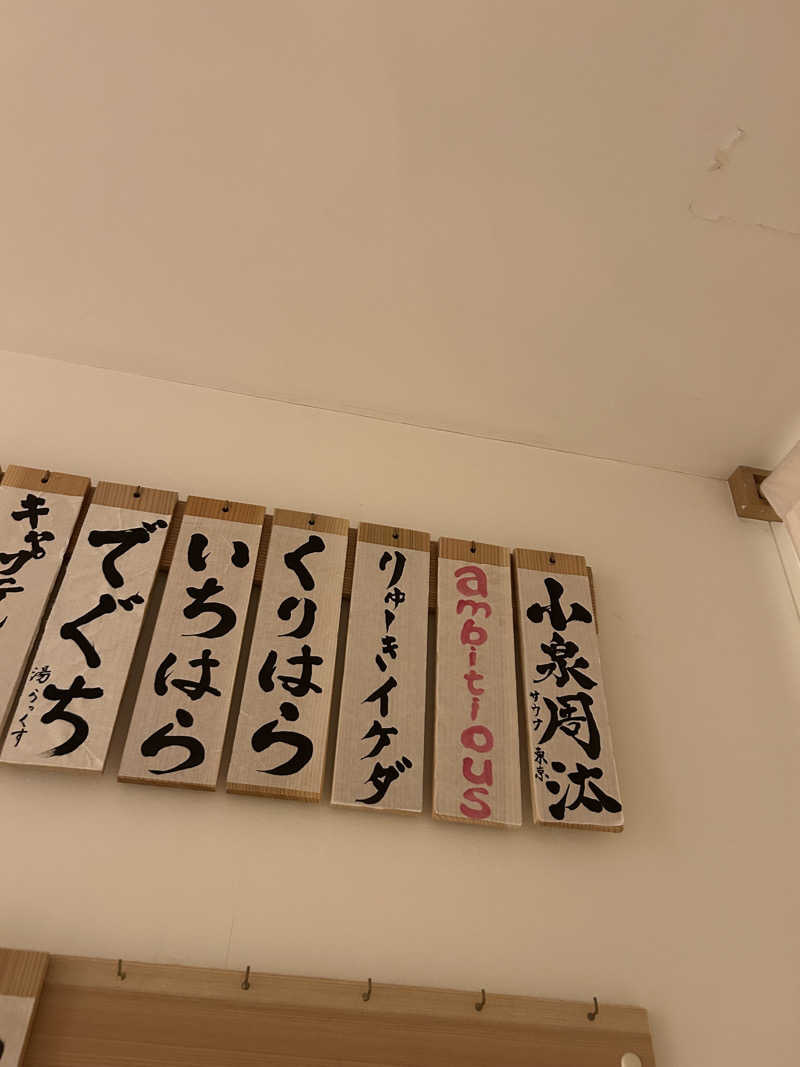 小泉周汰
サウナ東京
ambitious
りゅーきイケダ
くりはら
いちはら
でぐち
湯らっくす